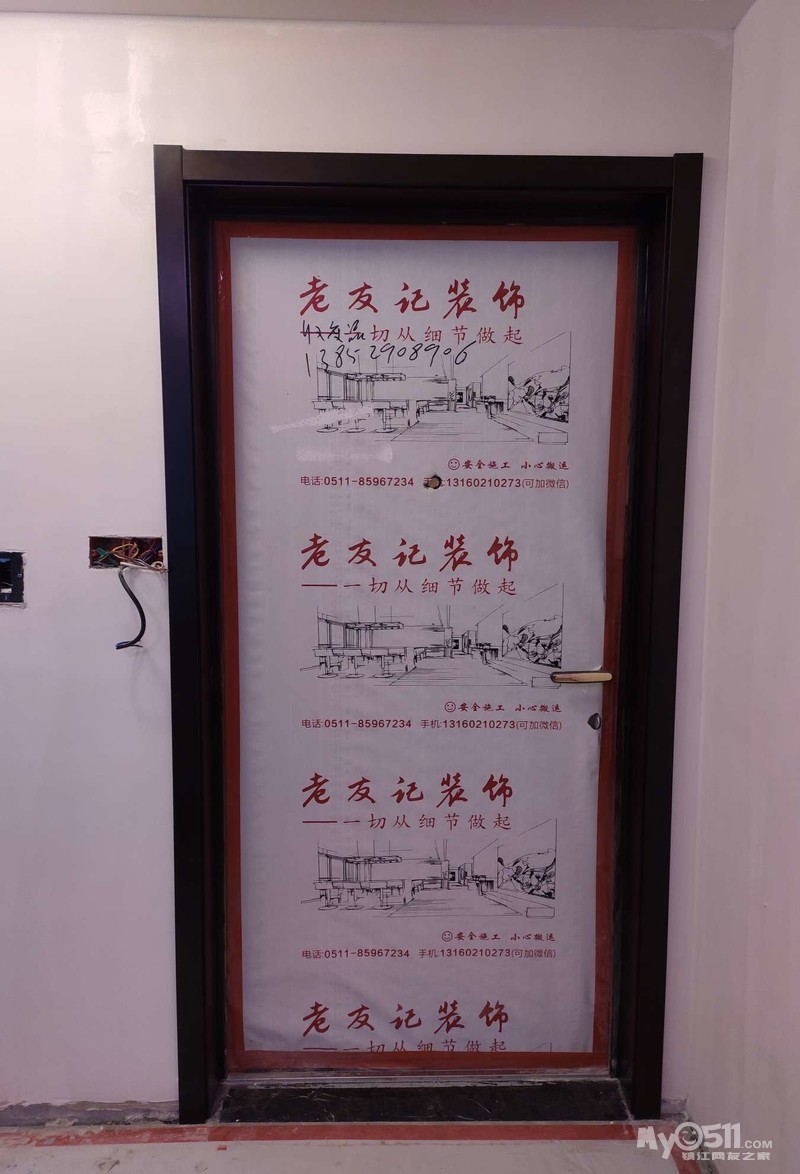 老友记装饰
一切从细节做起
收废品
13852908906
安全施工 小心搬运
电话:0511-85967234 手机:13160210273(可加微信)
老友记装饰
——一切从细节做起
安全施工 小心搬运
电话:0511-85967234 手机:13160210273(可加微信)
老友记装饰
——一切从细节做起
安全施工 小心搬运
电话:0511-85967234 手机:13160210273(可加微信)
老友记装饰
——一切从细节做起
My0511.COM
镇江网友之家